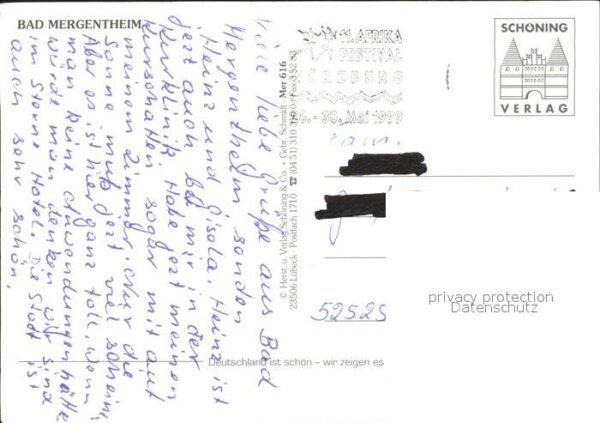 BAD MERGENTHEIM
Viele liebe Grüße aus Bad
Mergentheim senden
Heinz und Gisela. Heinz ist
jezt auch bei mir in der
Kurklinik. Habe jezt meinen
Kurschatten sogar mit auf
meinem Zimmer. Nur die
Sonne muß jezt viel scheinen
Aber es ist hier ganz toll, wenn
man keine Anwendungen hätte
würde man denken wir sind
im Sterne Hotel. Die Stadt ist
auch sehr schön.
© Herst. u. Verlag Schöning & Co. + Gebr. Schmidt · Mer 616
23506 Lübeck · Postfach 1710
11. AFRIKA
FESTIVAL
30. Mai 1999
SCHÖNING
VERLAG
Fam.
52525
privacy protection
Datenschutz
Deutschland ist schön – wir zeigen es